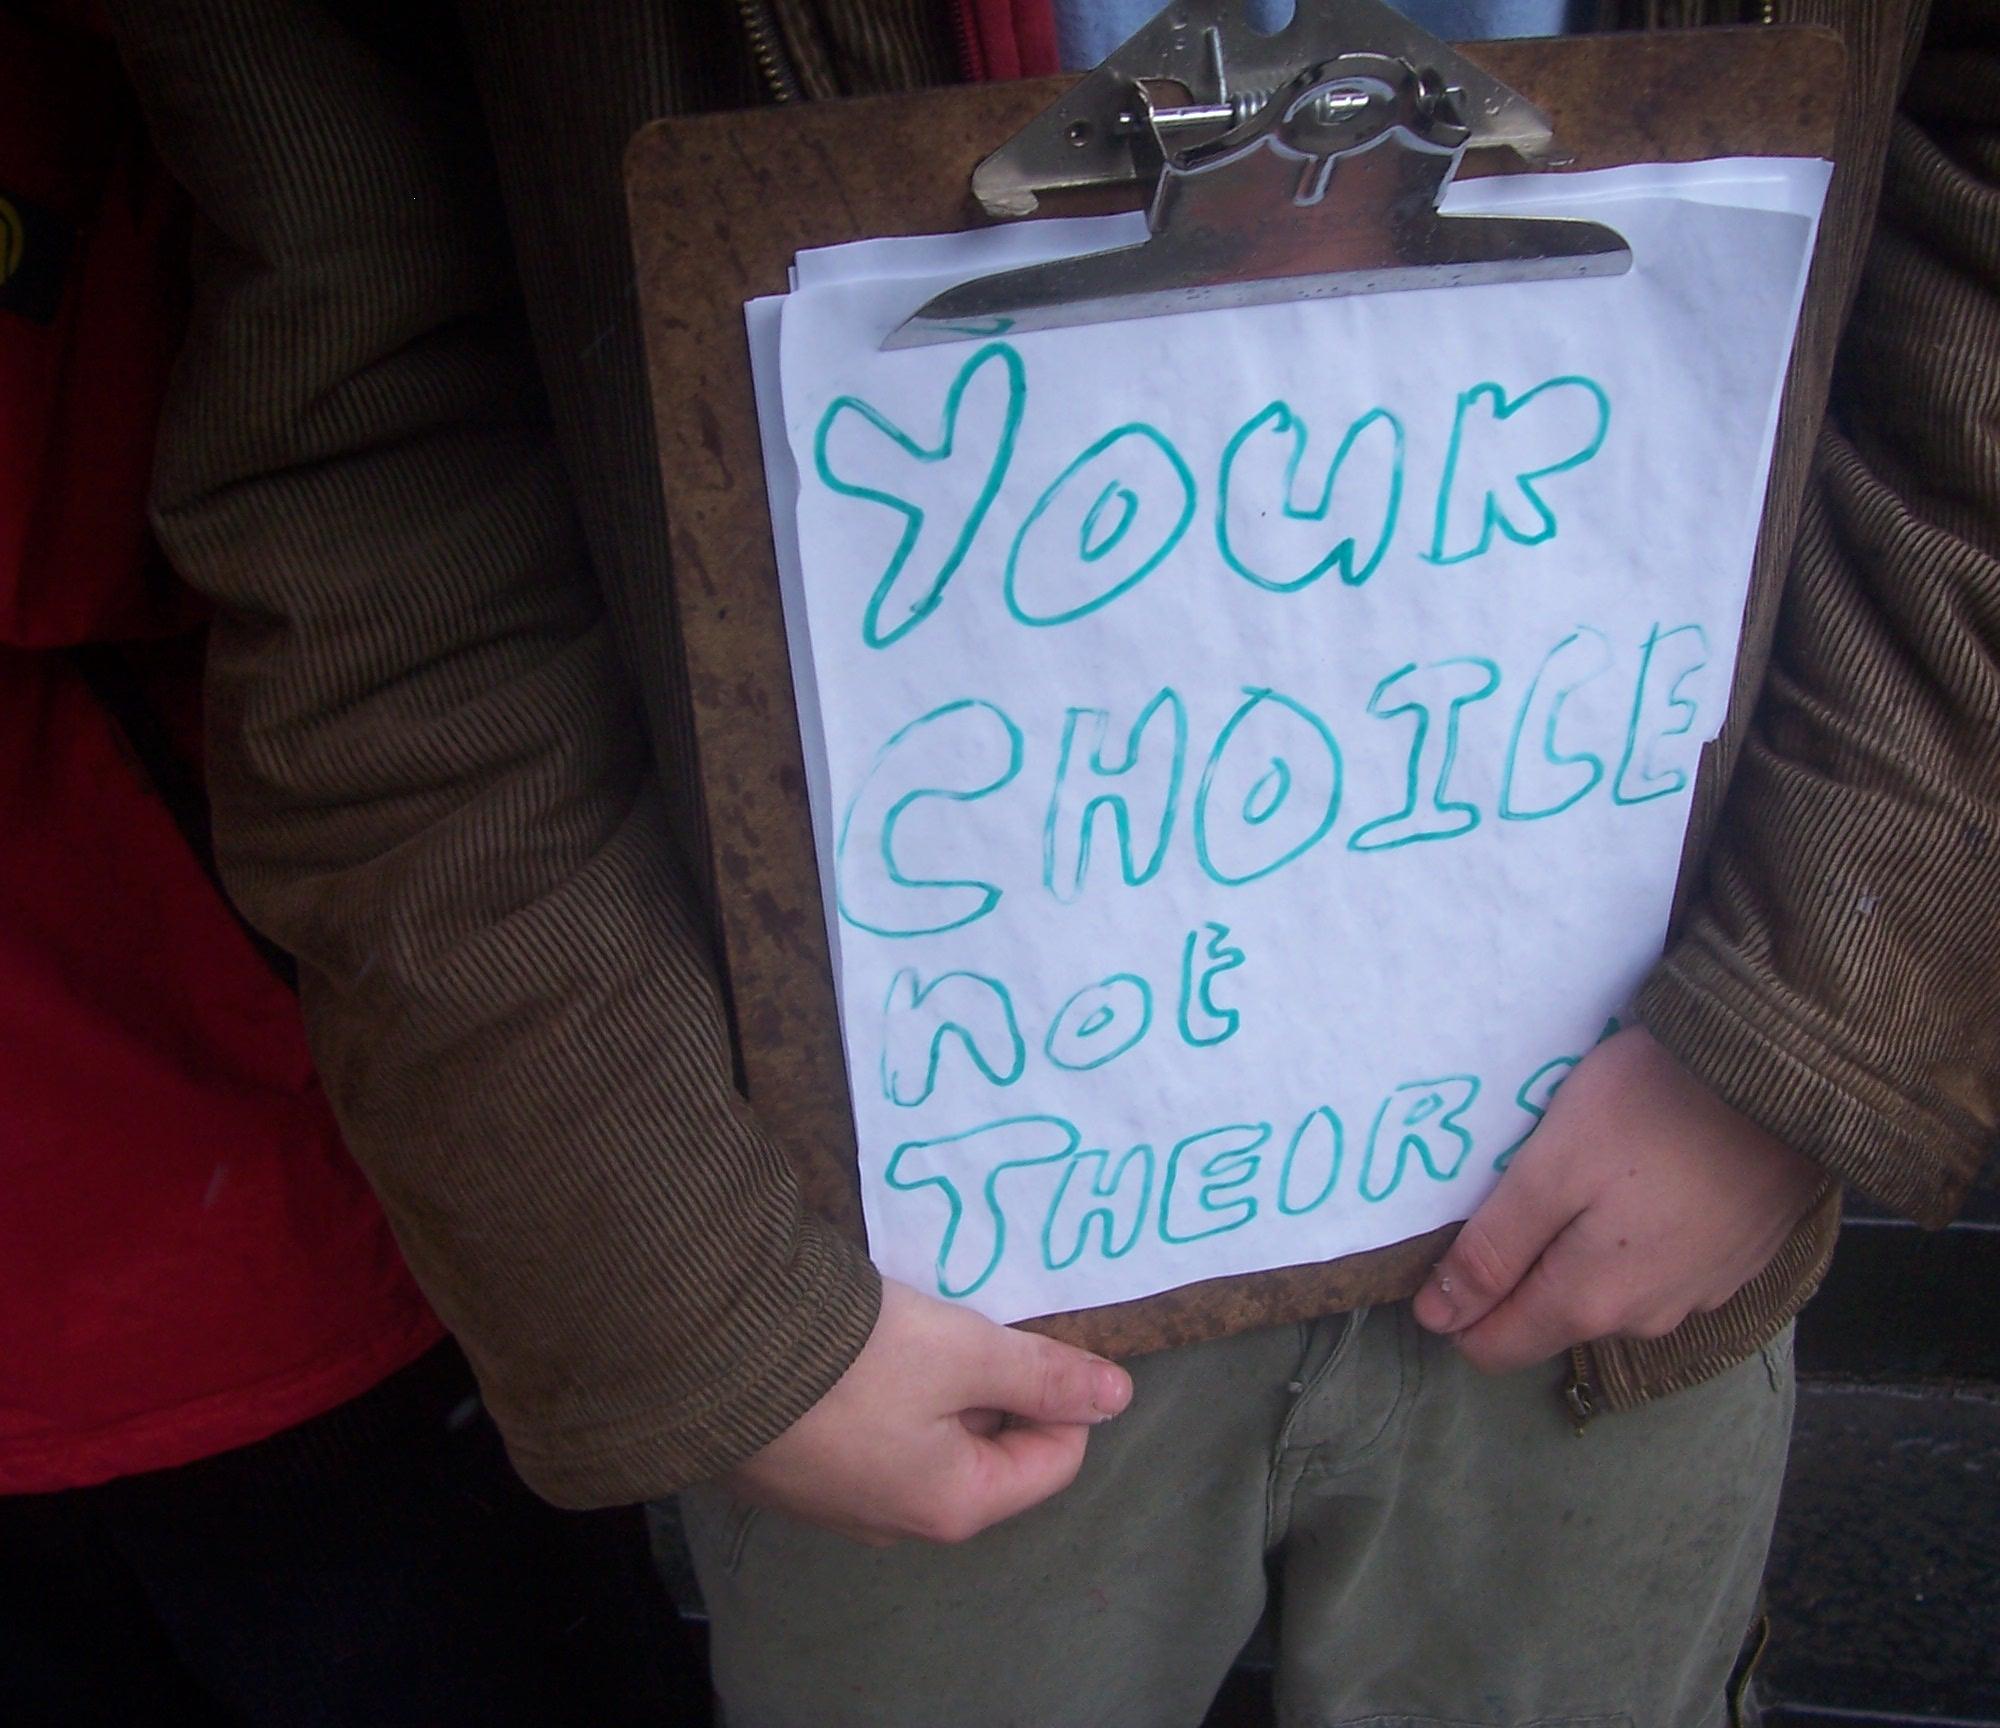 YOUR
CHOICE
not
THEIRS